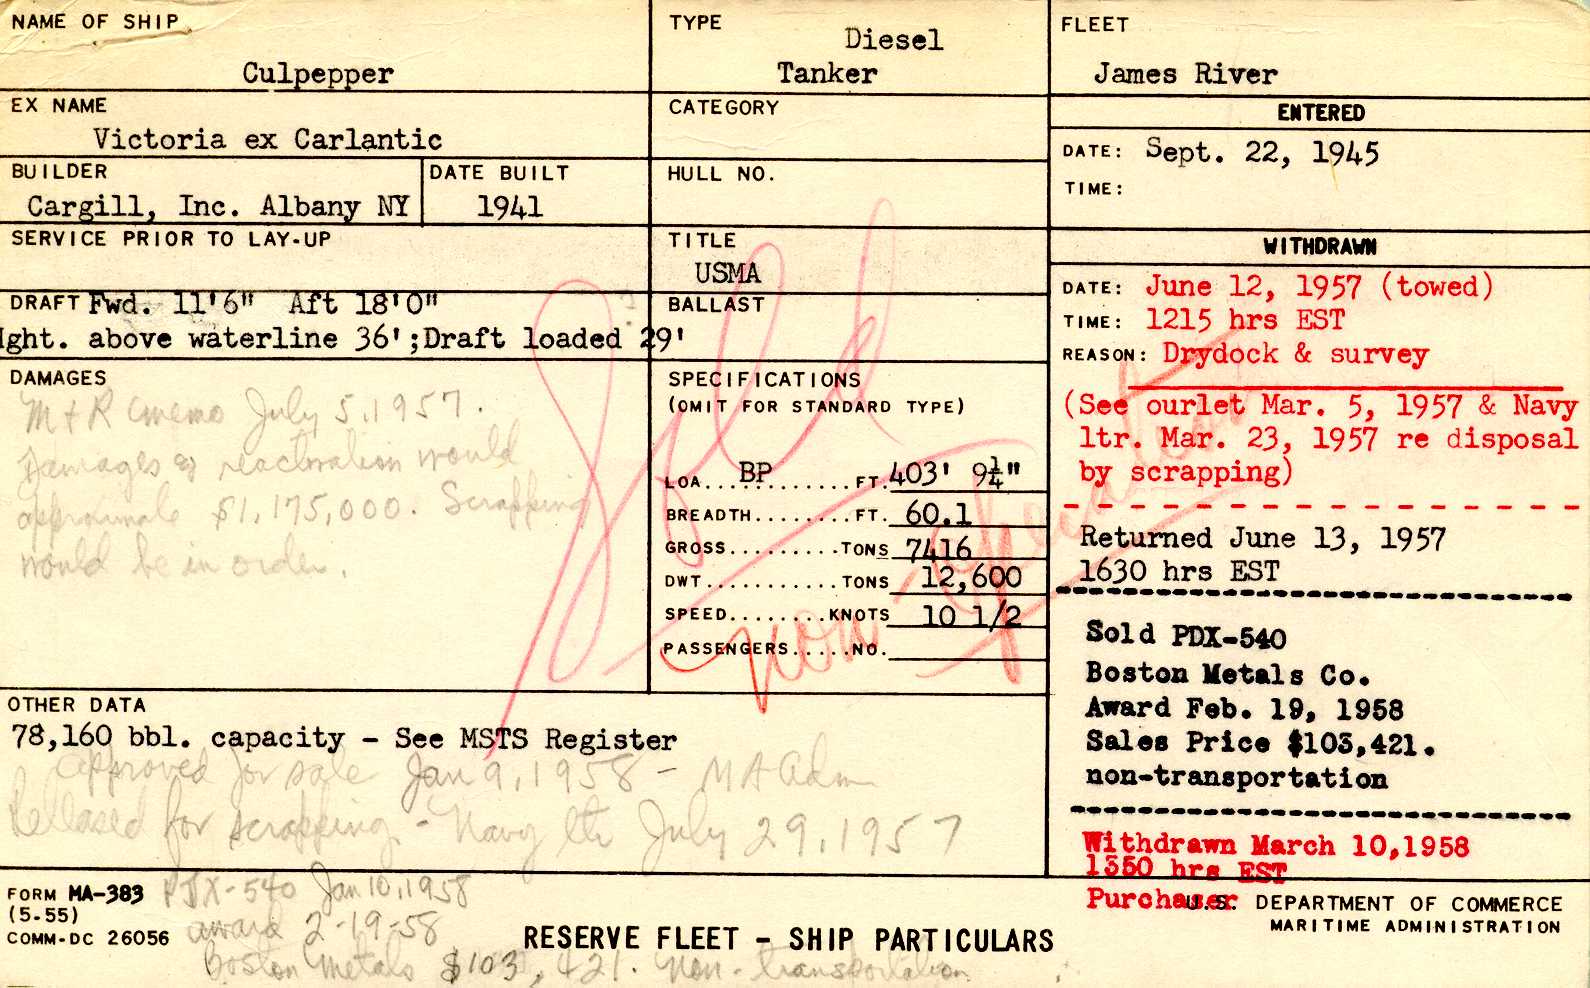 NAME OF SHIP
Culpepper
TYPE
Diesel
Tanker
FLEET
James River
EX NAME
Victoria ex Carlantic
CATEGORY
ENTERED
DATE: Sept. 22, 1945
TIME:
BUILDER
Cargill, Inc. Albany NY
DATE BUILT
1941
HULL NO.
SERVICE PRIOR TO LAY-UP
TITLE
USMA
WITHDRAWN
DATE: June 12, 1957 (towed)
TIME: 1215 hrs EST
REASON: Drydock & survey
(See ourlet Mar. 5, 1957 & Navy
ltr. Mar. 23, 1957 re disposal
by scrapping)
Returned June 13, 1957
1630 hrs EST
Sold PDX-540
Boston Metals Co.
Award Feb. 19, 1958
Sales Price $103,421.
non-transportation
Withdrawn March 10,1958
1350 hrs EST
Purchaser
DRAFT Fwd. 11'6" Aft 18'0"
ght. above waterline 36';Draft loaded 29'
BALLAST
DAMAGES
M & R memo July 5, 1957.
Damages & reactivation would
approximate $1,175,000. Scrapping
would be in order.
SPECIFICATIONS
(OMIT FOR STANDARD TYPE)
LOA.. BP ........FT. 403' 9¼"
BREADTH........FT. 60.1
GROSS.........TONS 7416
DWT...........TONS 12,600
SPEED........KNOTS 10 1/2
PASSENGERS.....NO.
Sold
non-operation
OTHER DATA
78,160 bbl. capacity - See MSTS Register
approved for sale Jan 9, 1958 - MA Adm
Released for scrapping - Navy ltr July 29, 1957
FORM MA-383
(5-55)
COMM-DC 26056
PDX-540 Jan 10, 1958
award 2-19-58
Boston Metals $103,421. non-transportation
RESERVE FLEET - SHIP PARTICULARS
U.S. DEPARTMENT OF COMMERCE
MARITIME ADMINISTRATION